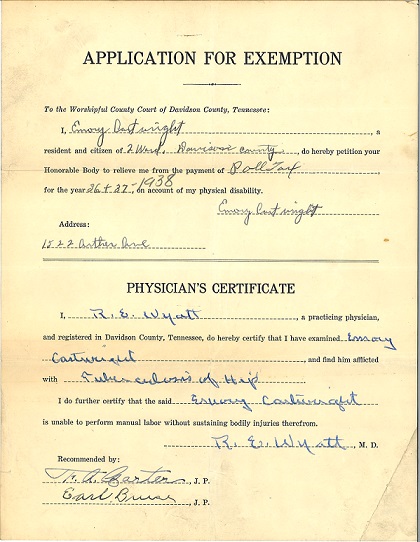 APPLICATION FOR EXEMPTION
To the Worshipful County Court of Davidson County, Tennessee:
I, Emory Cartwright, a
resident and citizen of 2 Ward, Davidson County, do hereby petition your
Honorable Body to relieve me from the payment of Poll Tax
for the year 36 + 37, -1938 on account of my physical disability.
Emory Cartwright
Address:
1522 Arthur Ave
PHYSICIAN'S CERTIFICATE
I, R. E. Wyatt, a practicing physician,
and registered in Davidson County, Tennessee, do hereby certify that I have examined Emory
Cartwright, and find him afflicted
with Tuberculosis of Hip
I do further certify that the said Emory Cartwright
is unable to perform manual labor without sustaining bodily injuries therefrom.
R. E. Wyatt, M. D.
Recommended by:
Carter, J. P.
Earl, J. P.